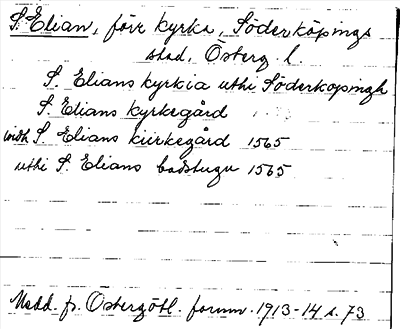 S. Elian, förr kyrka, Söderköpings
stad, Österg l.
S. Elians kyrkia uthi Söderkopingh
S. Elians kyrkegård
widh S. Elians kiirkegård 1565
uthi S. Elians badstugu 1565
Medd. fr. Östergötl. fornm. 1913-14 s. 73